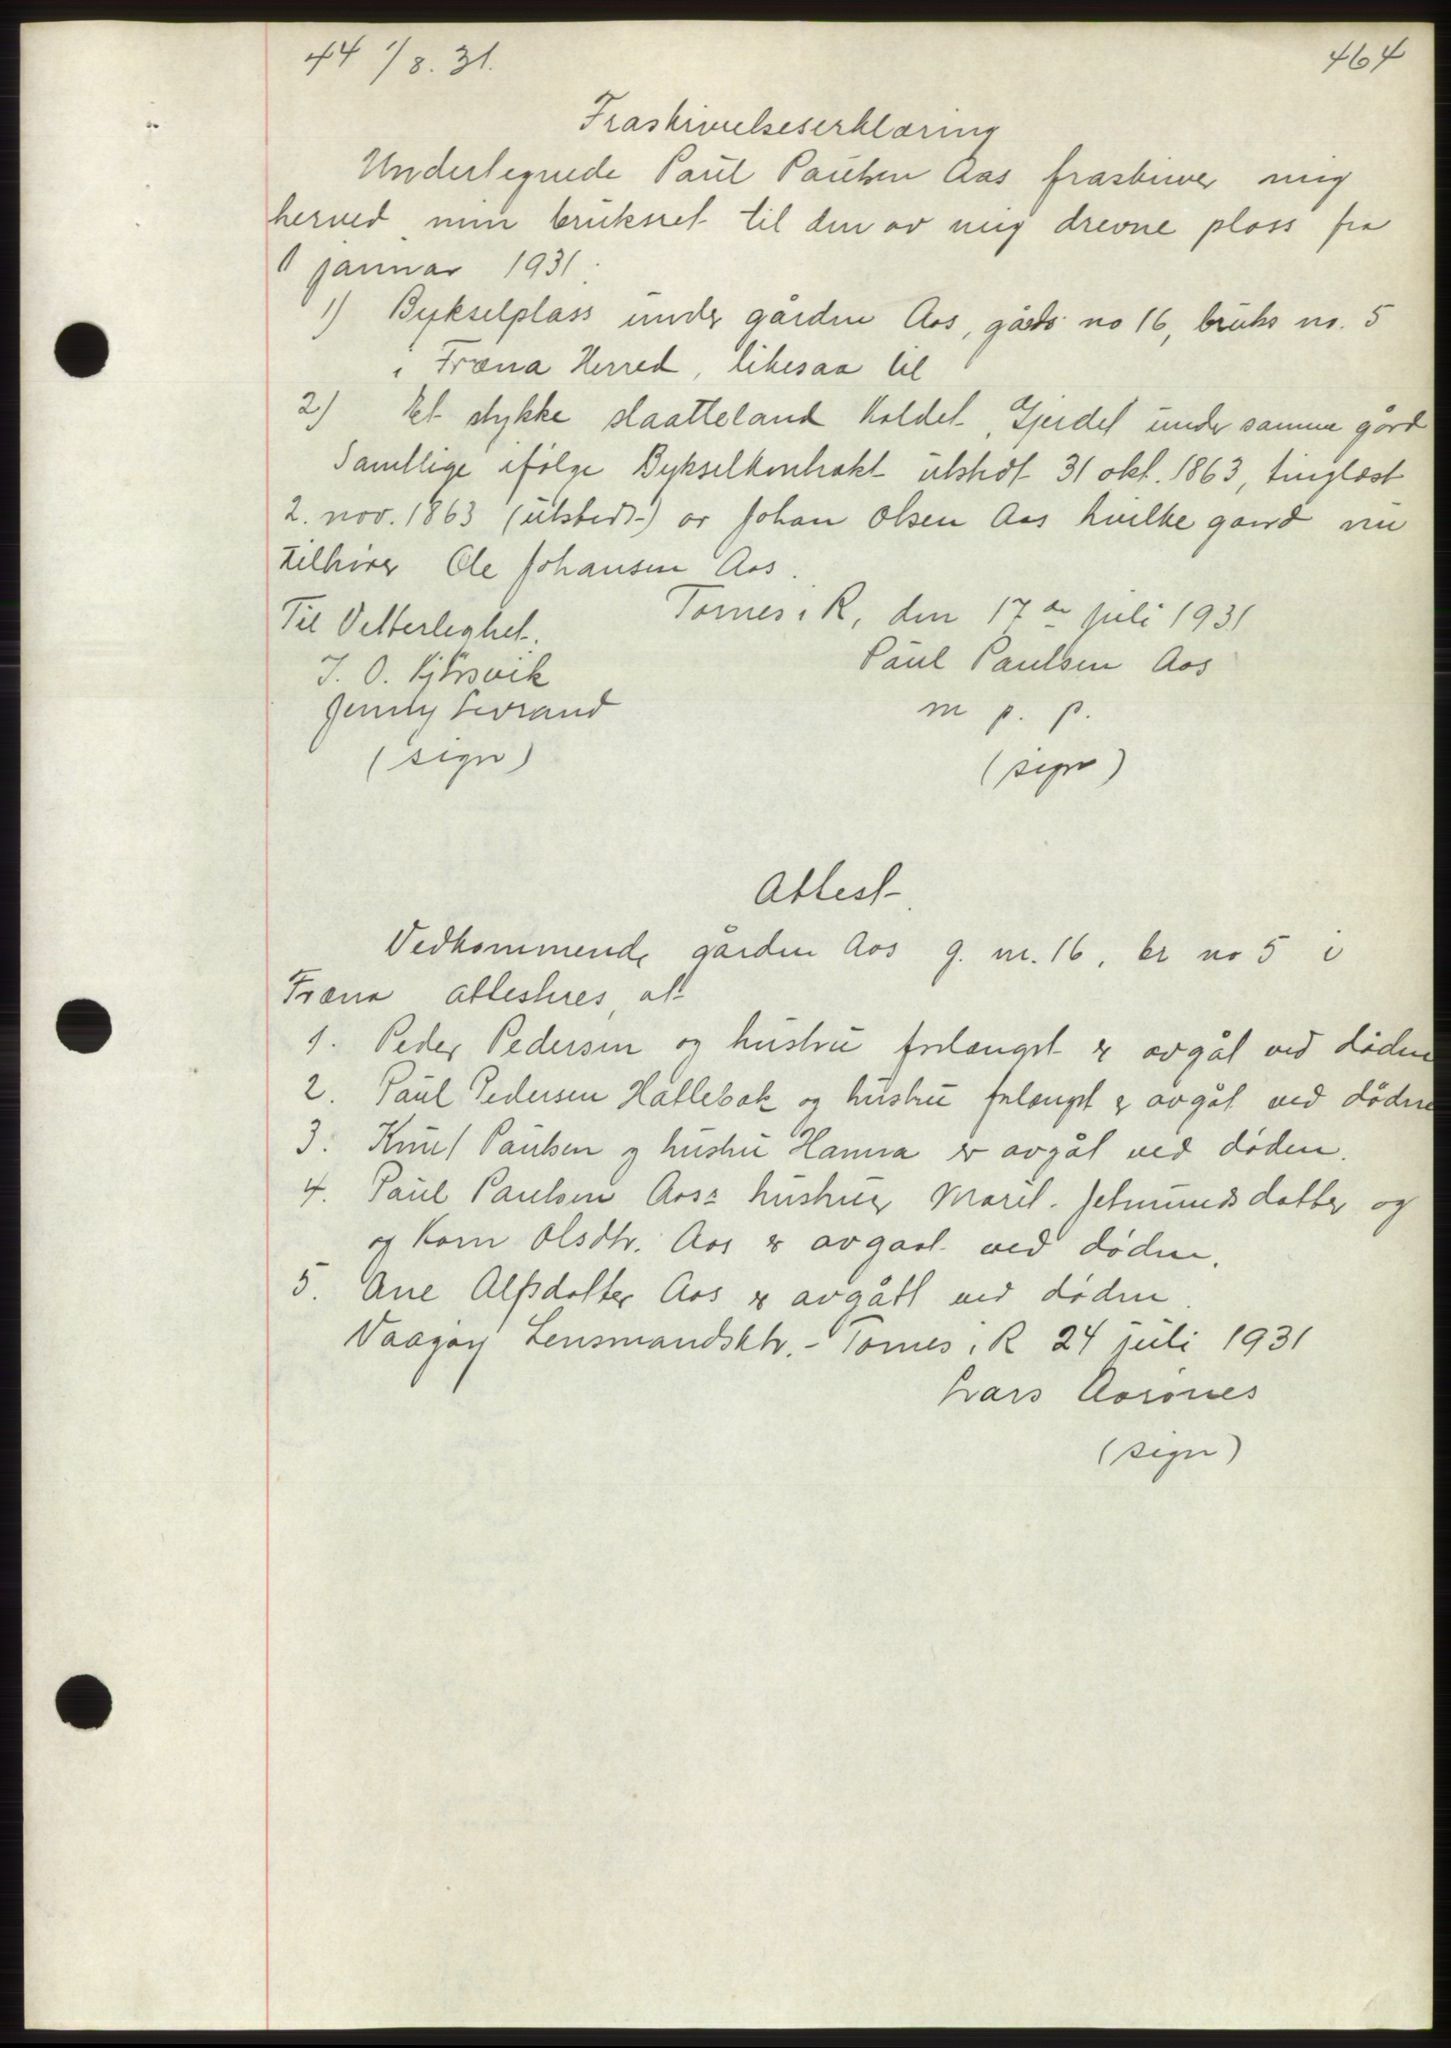 44 1/8. 31.
464
Fraskrivelseserklæring
Undertegnede Paul Paulsen Aas fraskriver mig
herved min bruksret til den av mig drevne plass fra
1 januar 1931.
1) Bykselplass under gården Aas, gårds no 16, bruks no. 5
i Fræna Herred, likesaa til
2) Et stykke slaatteland kaldet Gjerdet under samme gård
Samtlige ifølge Bykselkontrakt utstedt 31 okt. 1863, tinglæst
2. nov. 1863 (utstedt) av Johan Olsen Aas hvilke gaard nu
tilhører Ole Johansen Aas.
Tornes i R, den 17de juli 1931
Til Vitterlighet.
Paul Paulsen Aas
J. O. Kjørsvik
m p. p.
Jenny Levrand
(sign)
(sign)
Attest
Vedkommende gården Aas g. nr. 16, br no 5 i
Fræna attesteres, at
1. Peder Pedersen og hustru forlængst er avgåt ved døden
2. Paul Pedersen Hatlebak og hustru forlængst er avgåt ved døden
3. Knut Paulsen og hustru Hanna er avgåt ved døden.
4. Paul Paulsen Aas: hustruer Marit Jetmundsdatter og
og Karn Olsdtr. Aas er avgaat ved døden.
5. Ane Alfsdatter Aas er avgått ved døden.
Vaagøy Lensmandsktr. - Tornes i R 24 juli 1931
Lars Aarønes
(sign)